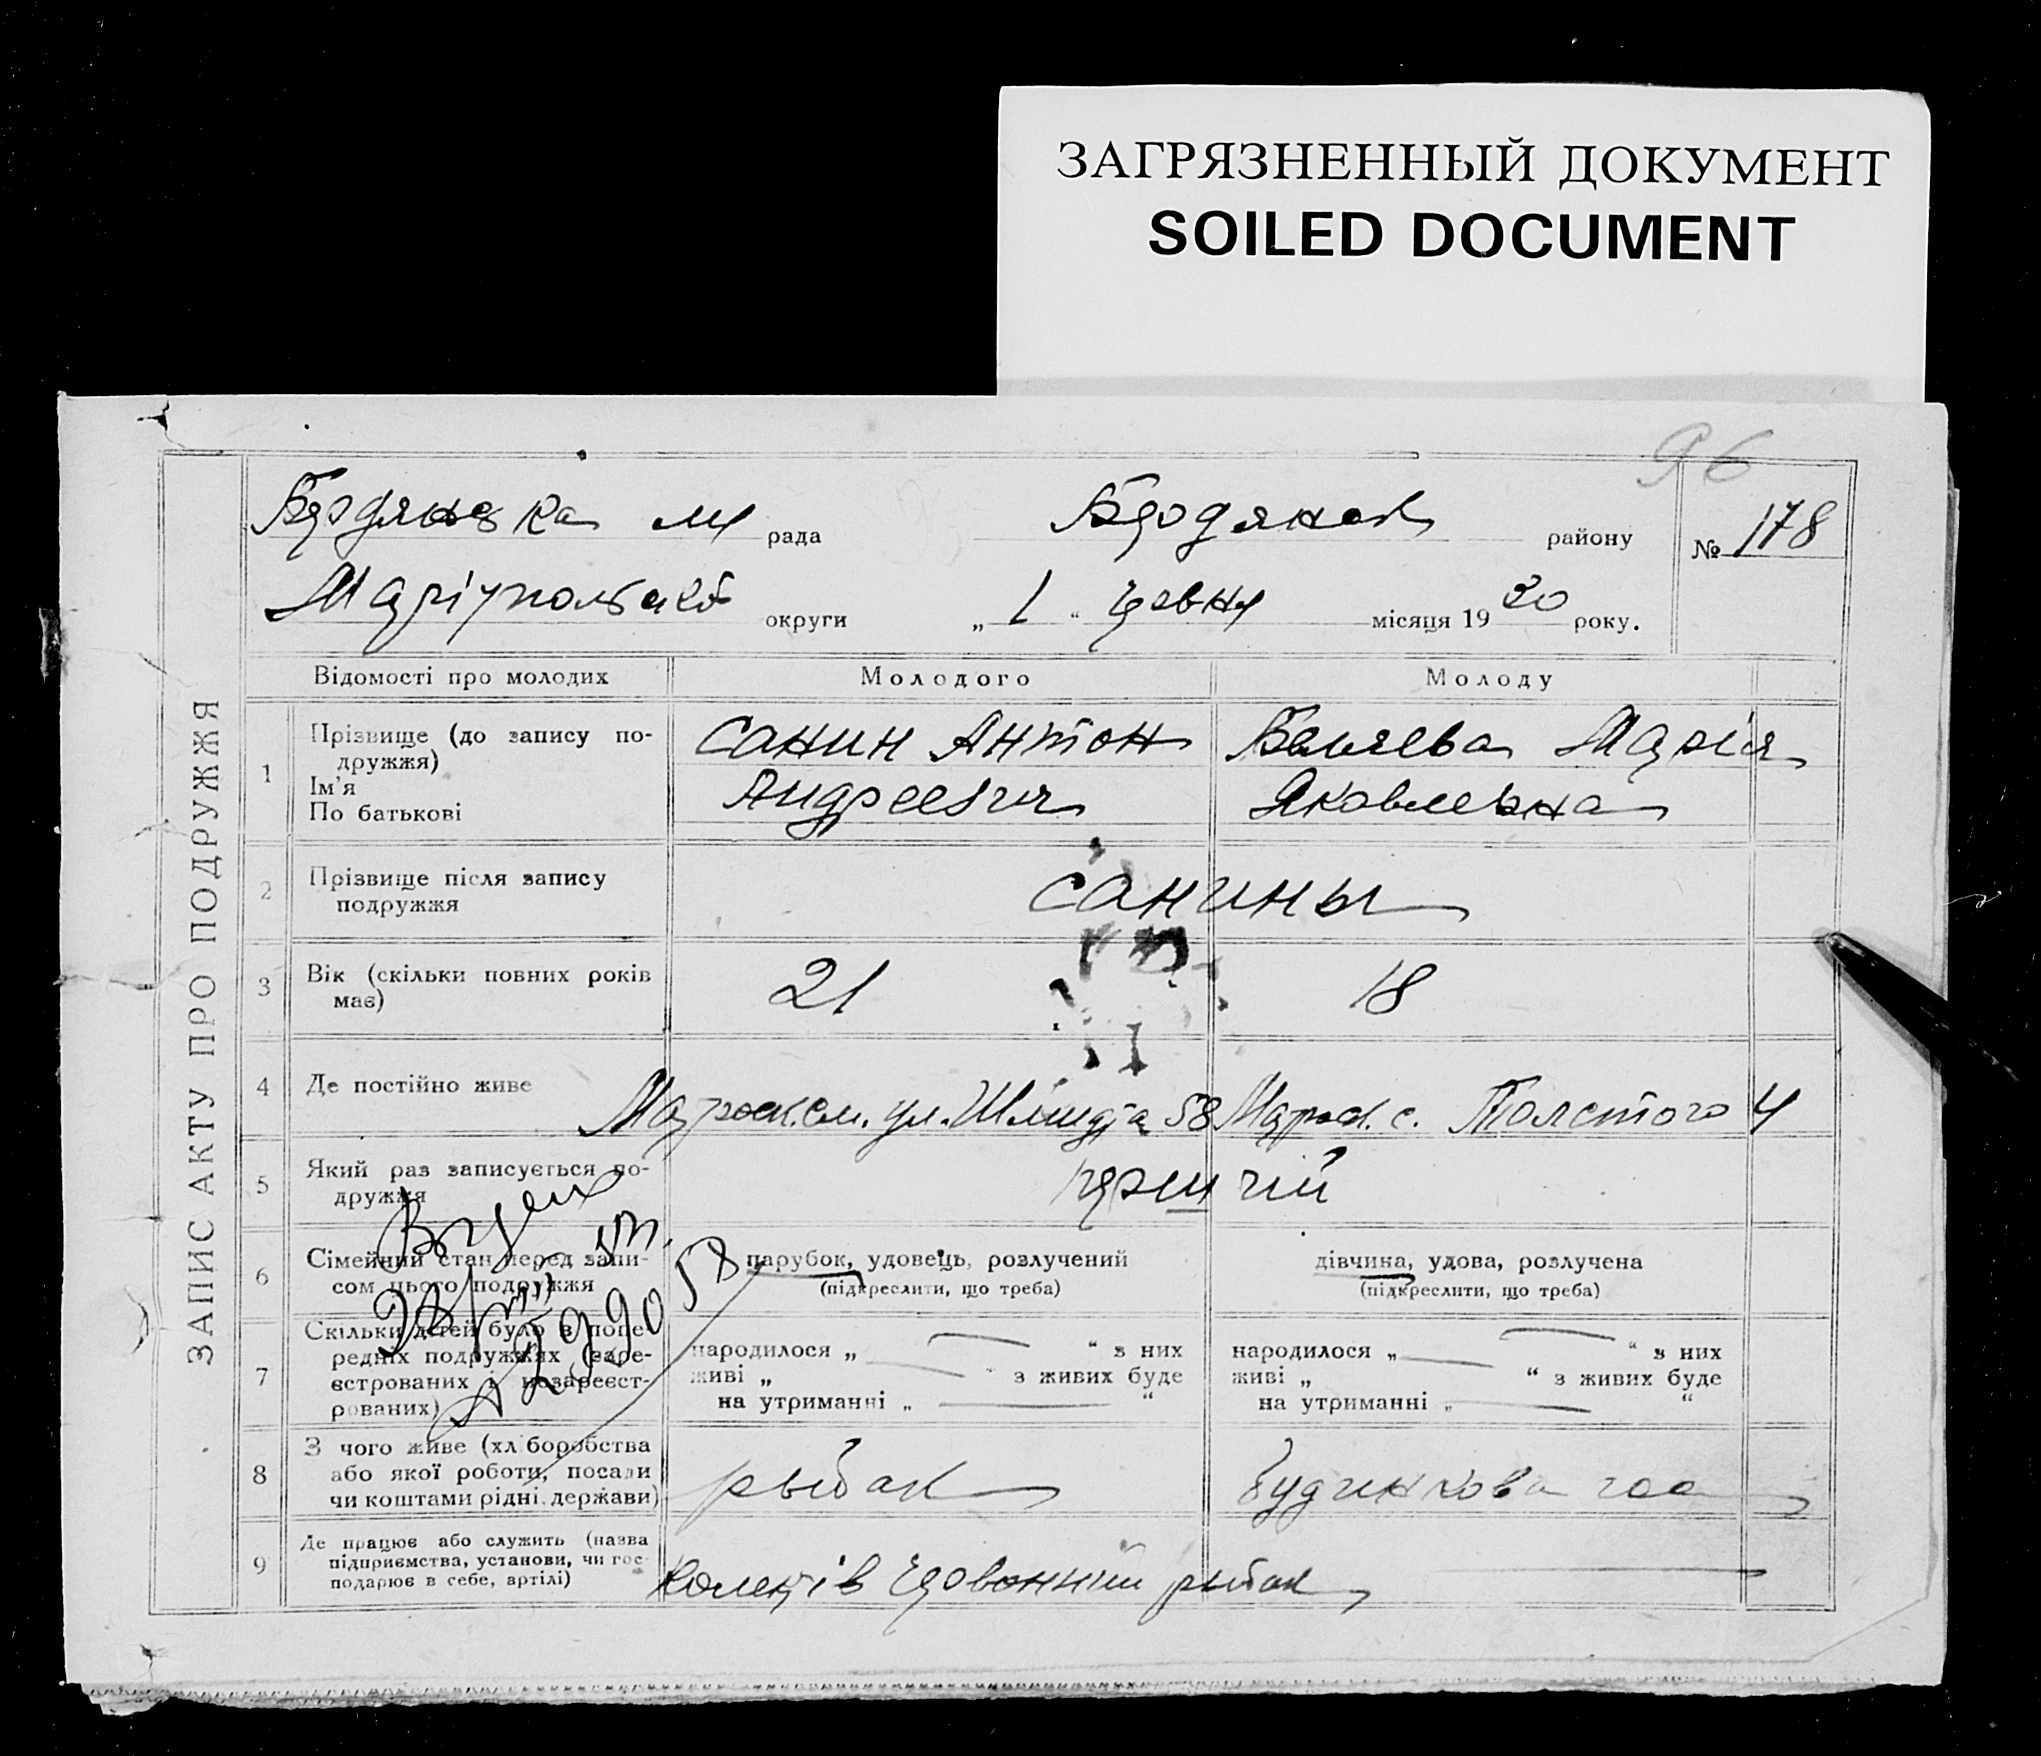 ЗАГРЯЗНЕННЫЙ ДОКУМЕНТ
SOILED DOCUMENT
96
ЗАПИС АКТУ ПРО ПОДРУЖЖЯ
Бердянська м рада Бердянськ району № 178
Маріупольської округи „ 1 “ червня місяця 1930 року.
Відомості про молодих Молодого Молоду
1 Прізвище (до запису по-
дружжя)
Ім'я
По батькові
Санин Антон
Андреевич
Беляева Марія
Яковлевна
2 Прізвище після запису
подружжя
Санины
3 Вік (скільки повних років
має)
21 18
4 Де постійно живе
Матроск. сл. ул. Шмидта 58 Матрос. с. Толстого 4
5 Який раз записується по-
дружжя
перший
6 Сімейний стан перед запи-
сом цього подружжя
парубок, удовець, розлучений
(підкреслити, що треба)
дівчина, удова, розлучена
(підкреслити, що треба)
7 Скільки дітей було в попе-
редніх подружжях (заре-
єстрованих і незареєст-
рованих)
народилося „ “ з них
живі „ “ з живих буде
на утриманні „ “
народилося „ “ з них
живі „ “ з живих буде
на утриманні „ “
8 З чого живе (хл боробства
або якої роботи, посади
чи коштами рідні держави)
рыбак
Будинкова гос
9 Де працює або служить (назва
підприємства, установи, чи гос-
подарює в себе, артілі)
Колектів Червонний рыбак